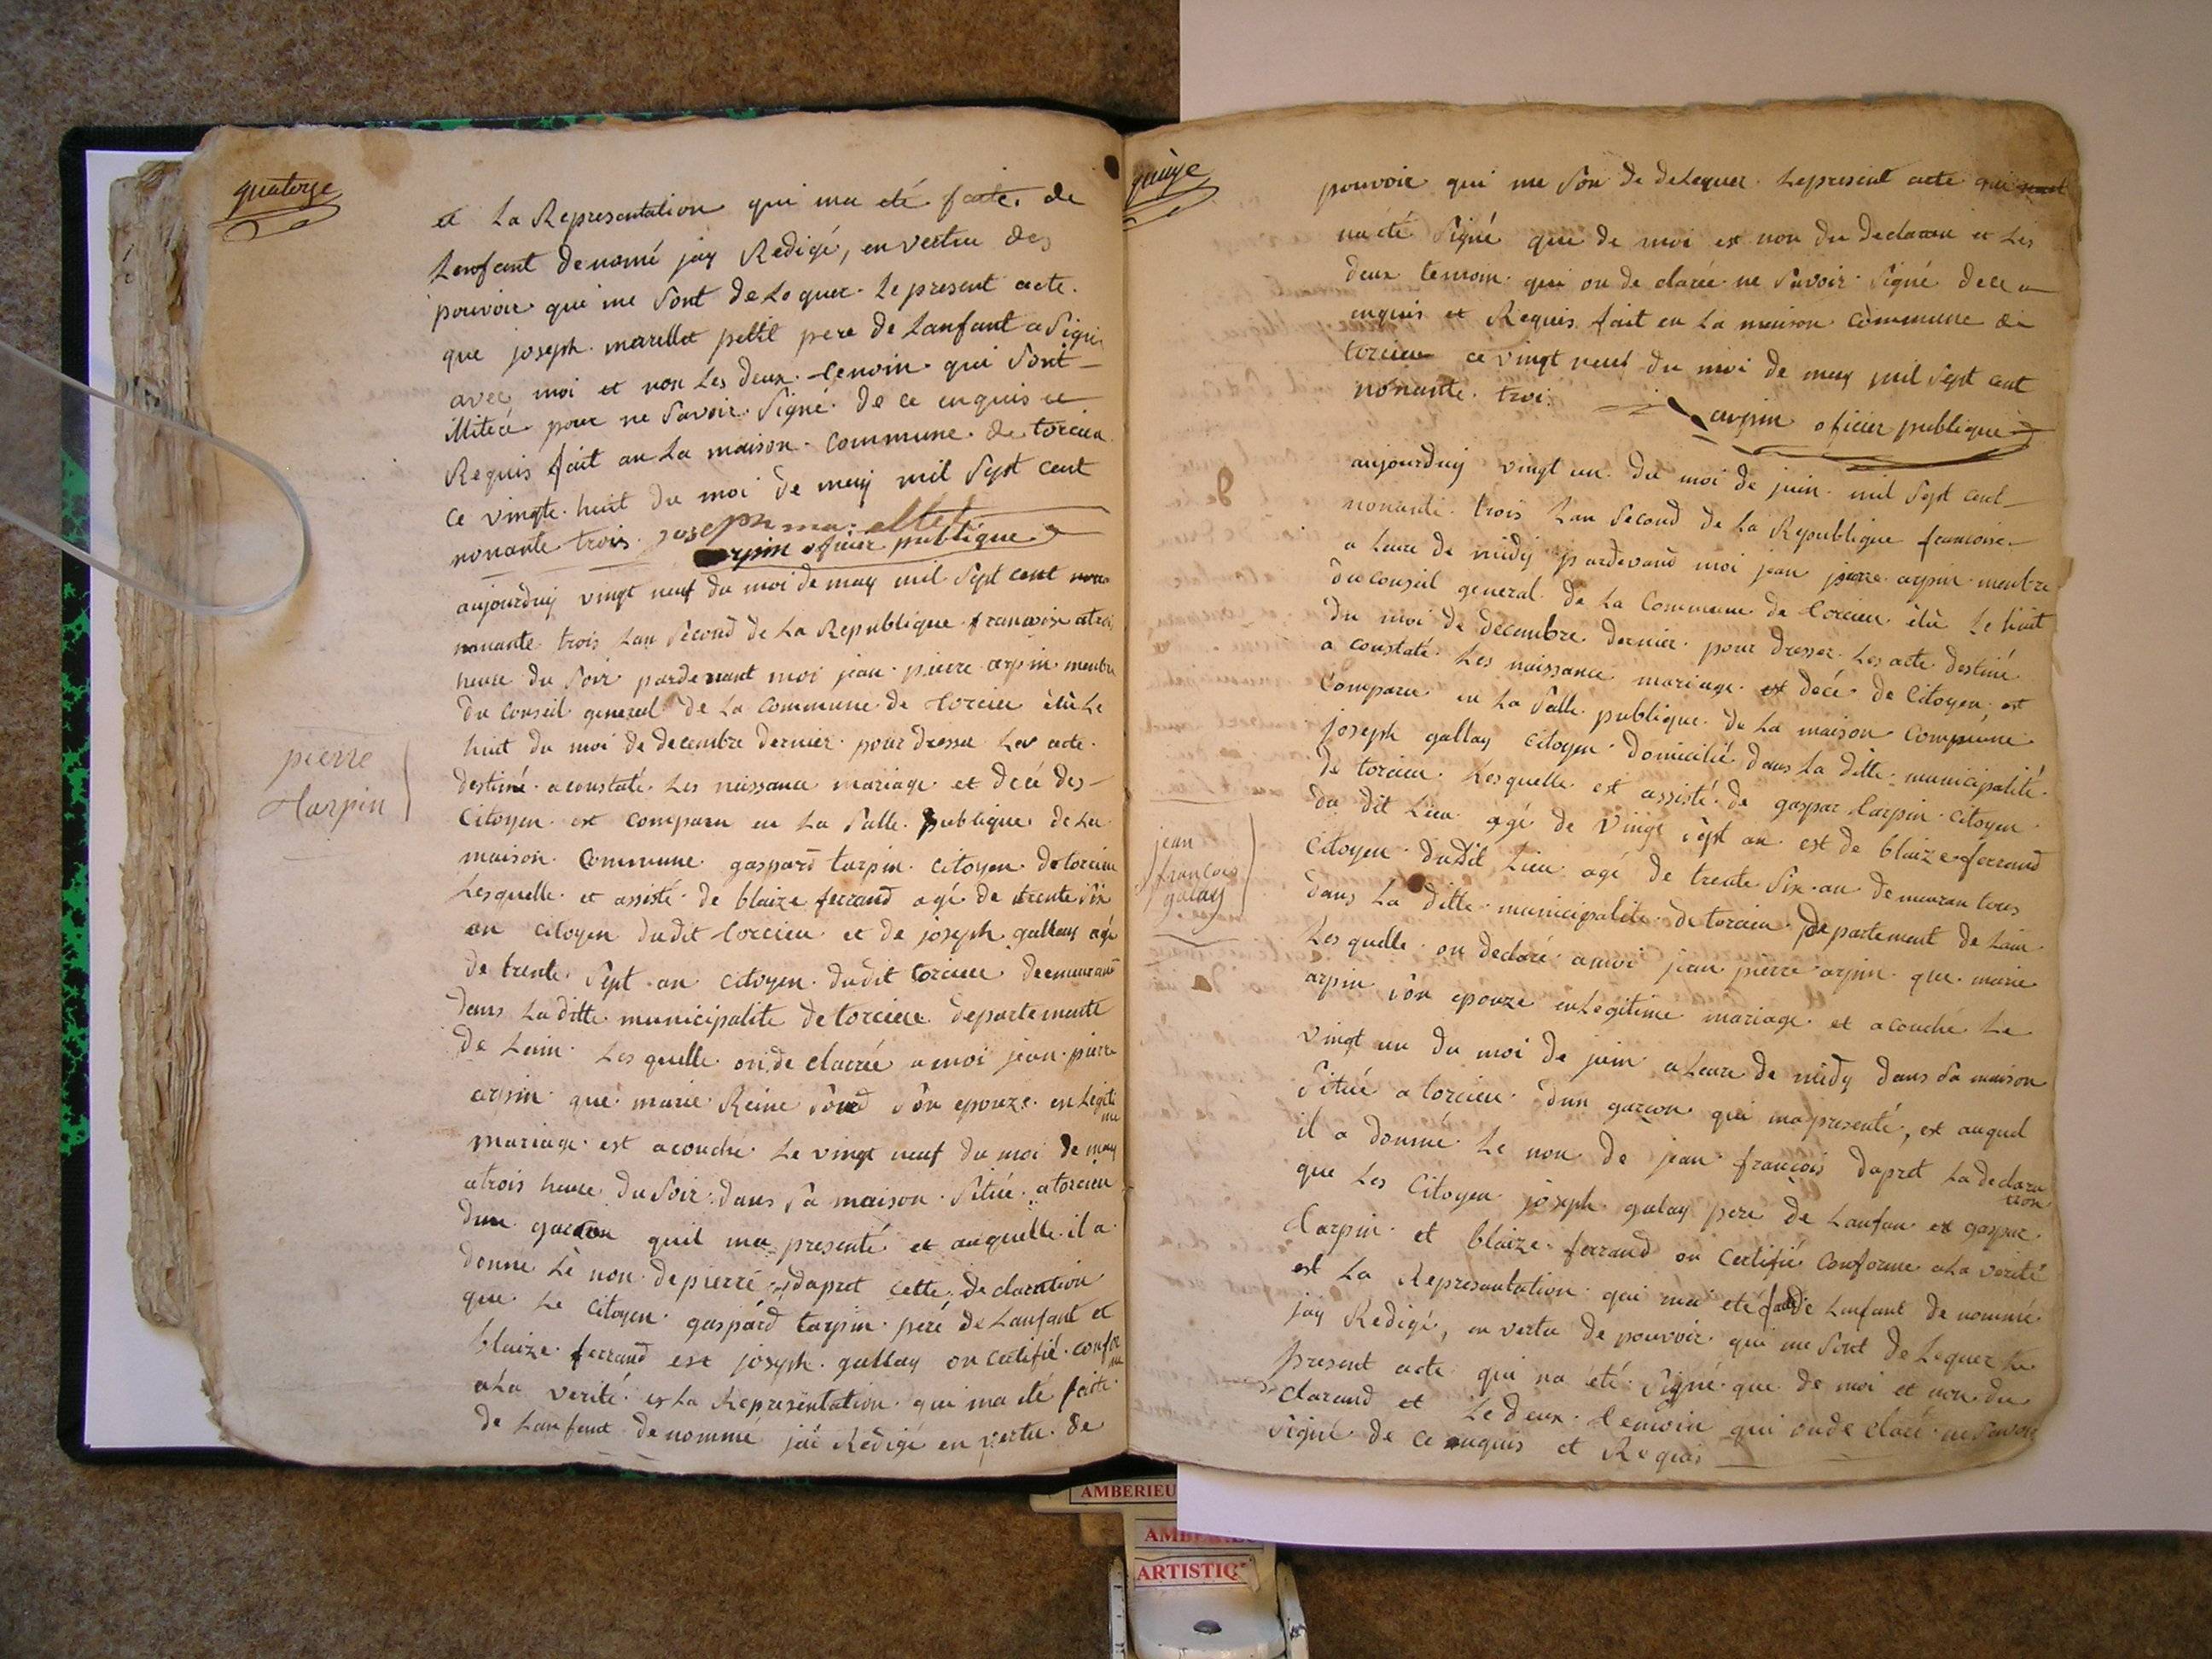 quatorze
et La Representation qui ma eté faite de
Lenfant denomé jay Redigé, en vertu des
pouvoir qui me sont deLeguer Le present acte
que joseph marellet petit pere de Lanfant a Signé
avec moi et non Les deux temoin qui Sont
illiteré pour ne Savoir Signé de ce enquis et
Requis fait an La maison Commune de torcieu
Ce vingte huit du moi de may mil Sept cent
nonante trois joseph marellet
arpin oficier publique
aujourduy vingt neuf du moi de may mil Sept cent
nonante trois Lan Second de La Republique francoise atroi
heure du Soir pardevant moi jean pierre arpin menbre
du Conseil general de La Commune de torcieu élù Le
huit du moi de decembre dernier pour dresser Les acte
destiné a constaté Les naissance mariage et decé des
Citoyen est Comparu en La Salle publique de La
maison Commune gaspard tarpin citoyen de torcieu
Lesquelle et assisté de blaize ferrand agé de trente Six
an citoyen dudit torcieu et de joseph gallay agé
de trente Sept an citoyen dudit torcieu demeurant
dans La ditte municipalite de torcieu departemente
de Lain Lesquelle on declarée a moi jean pierre
arpin que marie Reine Son epouze en Legiti
me
mariage est acouché Le vingt neuf du moi de may
atrois heure du Soir dans Sa maison Sitüé a torcieu
dun garcon quil ma presenté et auquelle il a
donné Lè non de pierre dapret cette declaration
que Le Citoyen gaspard tarpin peré de Lanfant et
blaize ferrand est joseph gallay on certifié confor
me
aLa verité et La Representation qui ma eté faite
de Lanfant denommé jai Redigé en vertu de
pierre
tarpin
quinze
pouvoir qui me Son de deLeguer Lepresent acte qui
na été Signé que de moi et non du declaran et Les
deux temoin qui on declarée ne Savoir Signé de ce
enquis et Requis fait en La maison Commune de
torcieu ce vingt neuf du moi de may mil Sept cent
nonante troi
arpin oficier publique
aujourduy vingt un du moi de juin mil Sept cent
nonante trois Lan Second de La Republique francoise
a Leure de midy pardevand moi jean pierre arpin menbre
du conseil general de La Commune de torcieu élù Le huit
du moi de decembre dernier pour dresser Les acte destiné
a constaté Les naissance mariage et decé de Citoyen est
Comparu en La Salle publique de La maison Commune
joseph gallay Citoyen domicilié dans La ditte municipalité
de torcieu Lesquelle est assisté de gaspar tarpin Citoyen
du dit Lieu agé de Vingt Sept an est de blaize ferrand
Citoyen dudit Lieu agé de trente Six an demeuran tous
dans La ditte municipalité de torcieu departement de Lain
Lesquelle on declaré a moi jean pierre arpin que marie
arpin Son epouze enLegitime mariage et acouché Le
vingt un du moi de juin a Leure de midy dans Sa maison
Situé a torcieu dun garcon qui ma presenté, est auquel
il a donné Le non de jean francois dapret La declara
tion
que Les Citoyen joseph galay pere de Lanfan et gaspar
tarpin et blaize ferrand on Certifié Conforme aLa verité
est La Representation qui ma eté faite de Lanfant denommé
jay Redigé, en vertu de pouvoir qui me Sont deLeguer Le
present acte qui na été Signé que de moi et non du
clarand et Le deux temoin qui on declaré ne Savoir
Signé de ce enquis et Requis
jean
francois
galay
AMBERIEU
ARTISTIQ